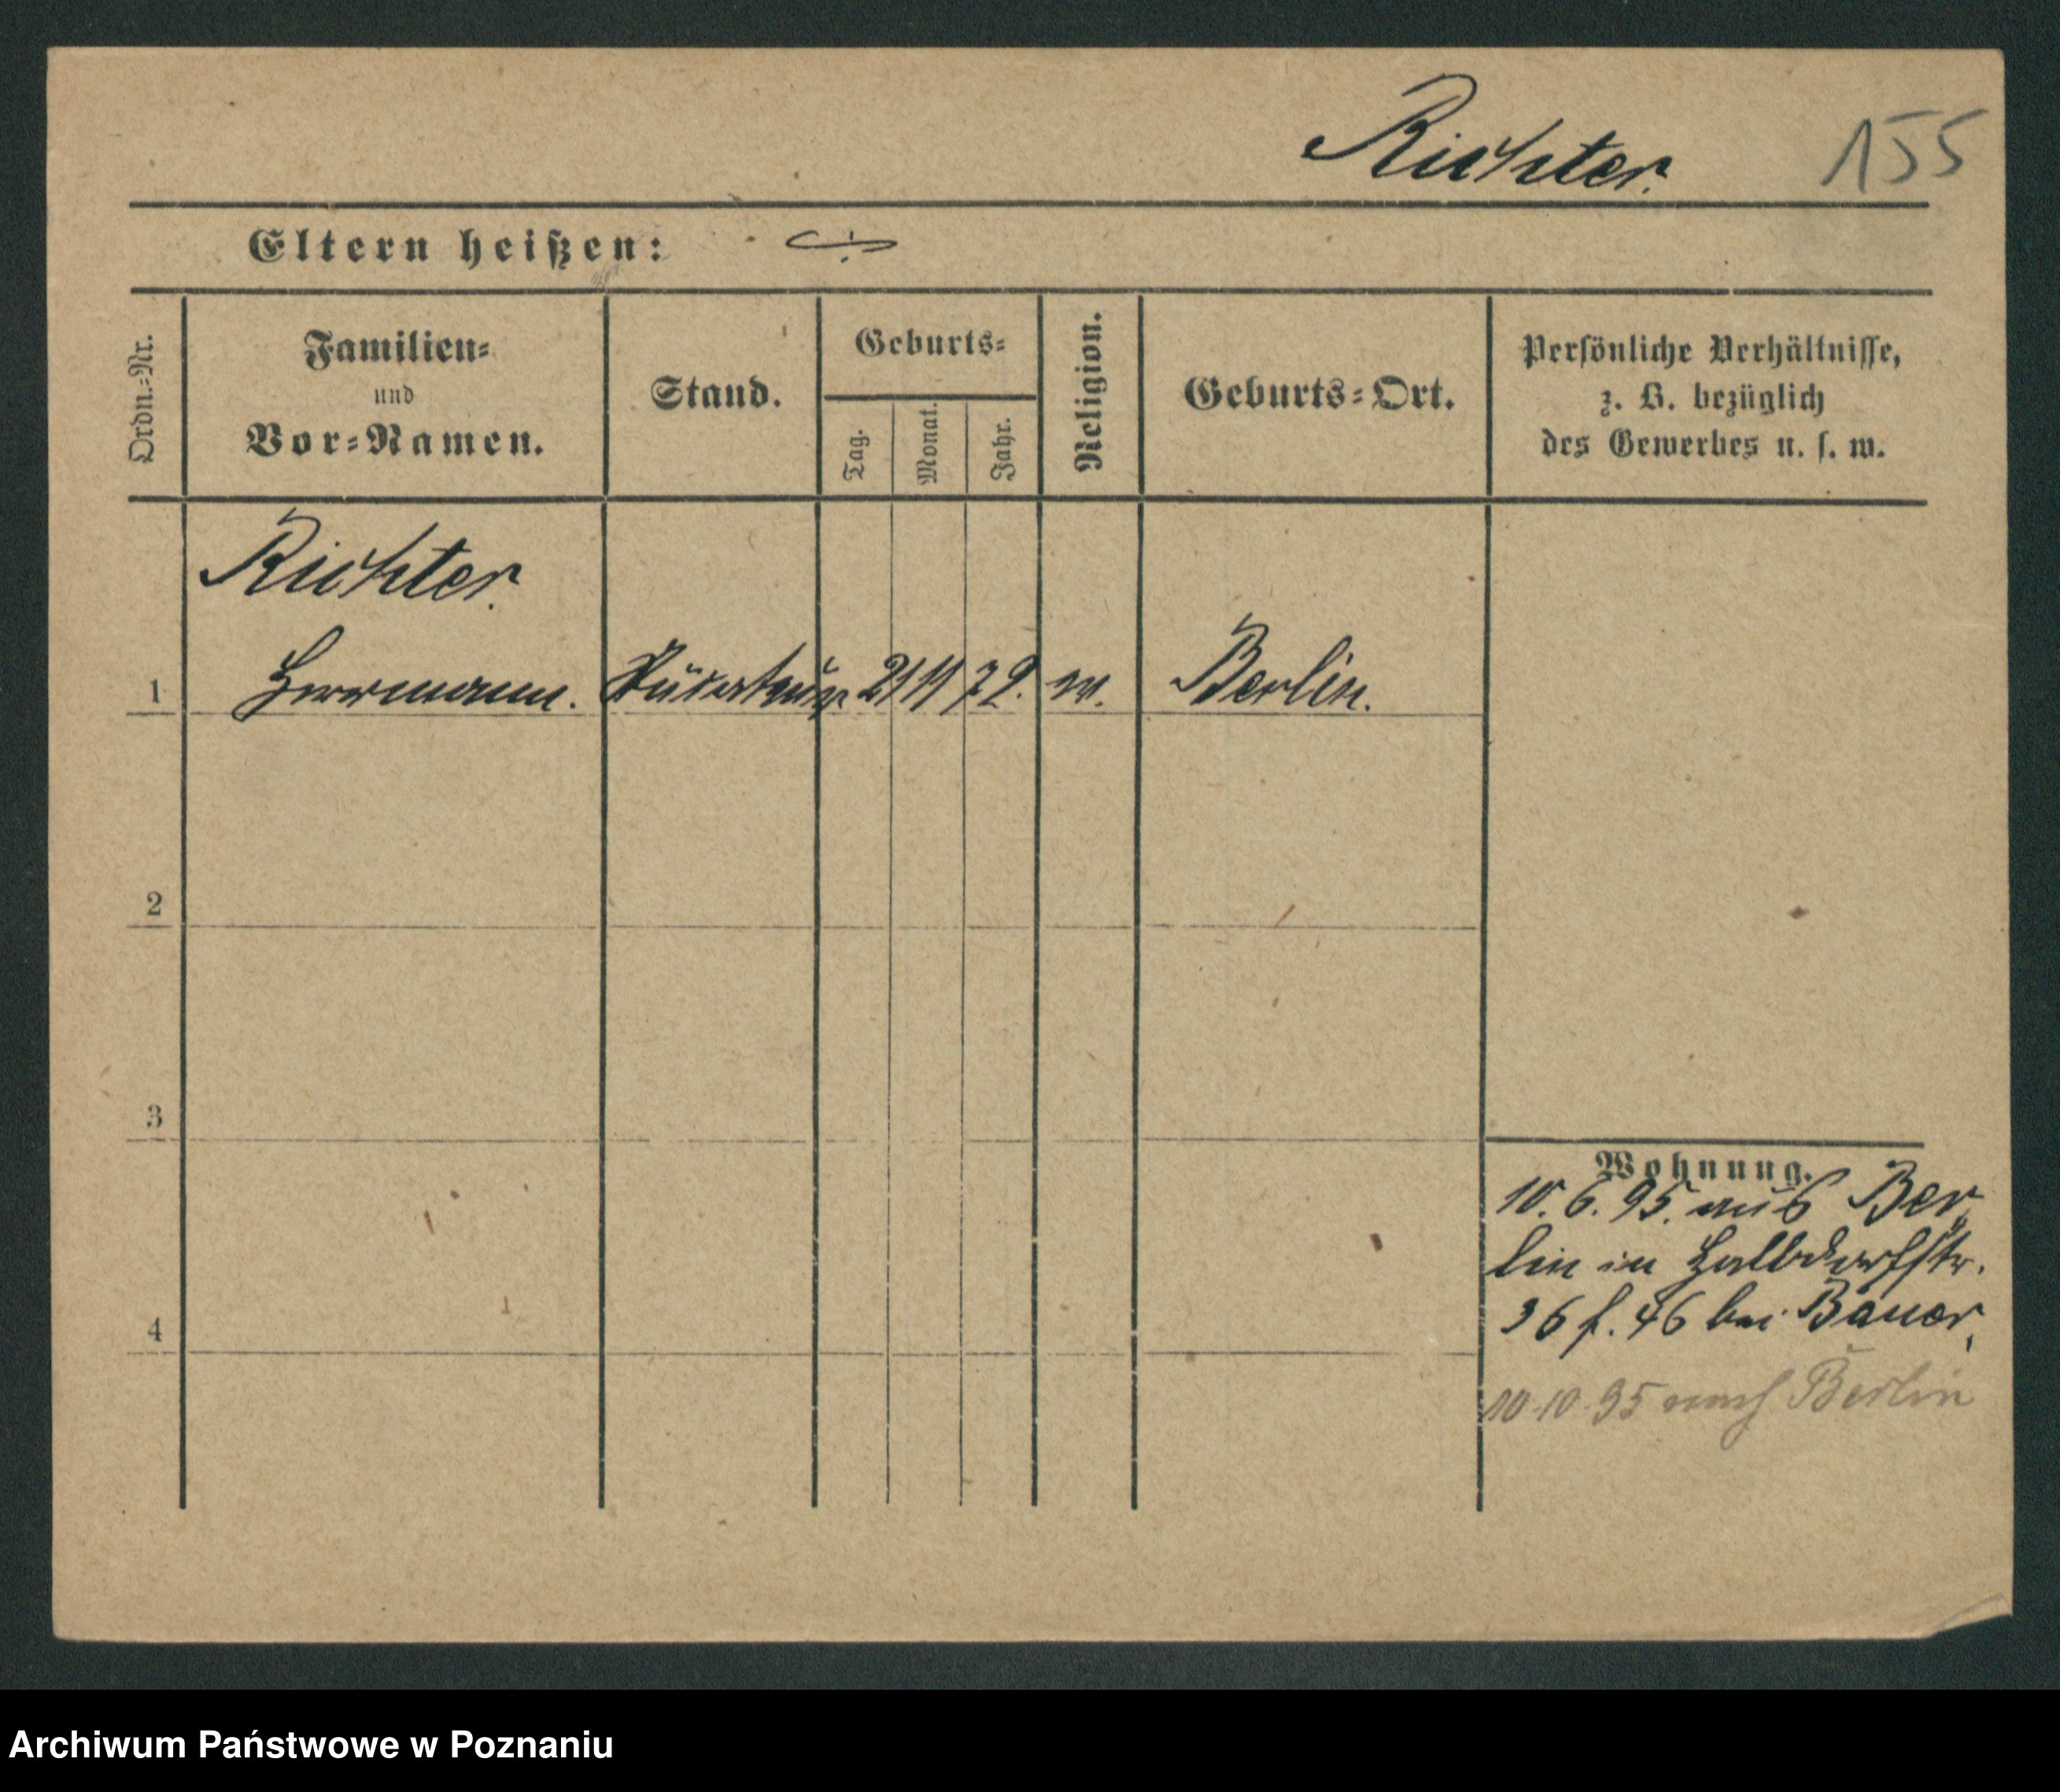 Richter. 155
Eltern heißen:
Ordn.=Nr.
Familien=
und
Vor=Namen.
Stand.
Geburts=
Tag.
Monat.
Jahr.
Religion.
Geburts=Ort.
Persönliche Verhältnisse,
z. B. bezüglich
des Gewerbes u. s. w.
Richter.
1 Herrmann. 21 11 72. ev. Berlin.
2
3
4
Wohnung.
10. 6. 95. aus Ber
lin in Halbdorfstr.
36 f. 46 bei Bauer,
10.10.95 nach Berlin
Archiwum Państwowe w Poznaniu